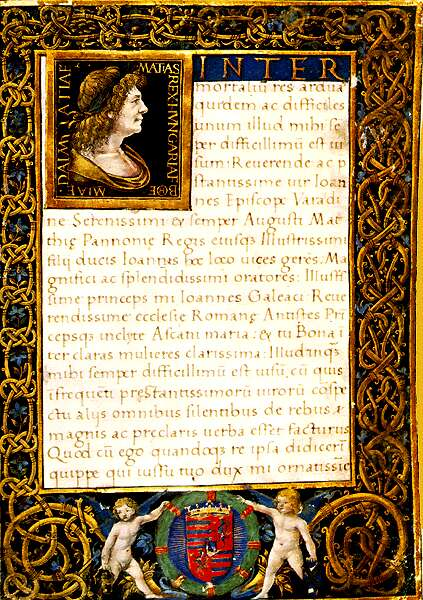 MATIAS REX HVNGARIAE
BOE
MIAE
INTER
mortaliũ res ardua
quidem ac difficiles
unum illud mihi sẽ
per difficillimũ est ui
sum: Reuerende ac p
stantissime uir Ioan
nes Episcope Varadi
ne Serenissimi & semper Augusti Mat
thię Pannonię Regis eiusq; Illustrissimi
filij ducis Ioannis hoc loco uices gerẽs: Ma
gnifici ac splendidissimi oratores: Illustris
sime princeps mi Ioannes Galeaci Reue
rendissime ecclesię Romanę Antistes Prĩ
cepsq; inclyte Ascani maria: & tu Bona ĩ
ter claras mulieres clarissima: Illud inq̃;
mihi semper difficillimũ est uisũ, cũ quis
ĩ frequẽti prestantissimorũ uirorũ cõspe
ctu alijs omnibus silentibus de rebus
magnis ac preclaris uerba esset facturus
Quod cũ ego quandoq; re ipsa didicerĩ
quippe qui iussu tuo dux mi ornatissie